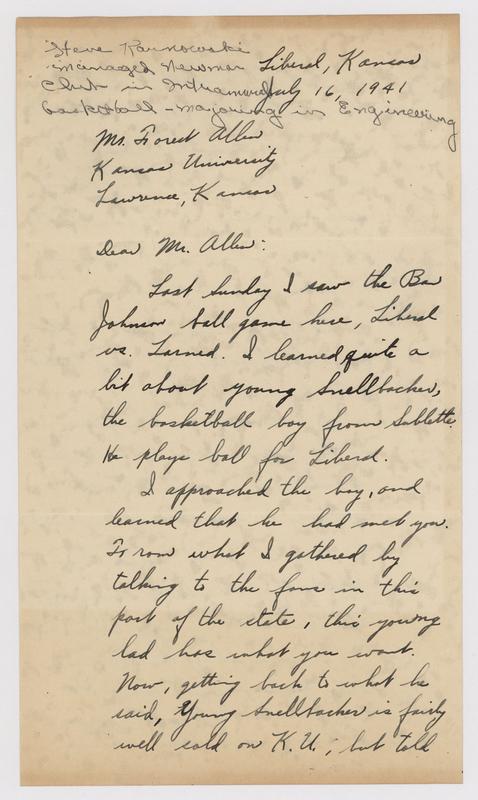 Steve Karnowski
managed Newman
Club in Intramural
basketball - majoring in Engineering
Liberal, Kansas
July 16, 1941
Mr. Forest Allen
Kansas University
Lawrence, Kansas
Dear Mr. Allen:
Last Sunday I saw the Ban
Johnson ball game here, Liberal
vs. Larned. I learned quite a
bit about young Snellbacker,
the basketball boy from Sublette.
He plays ball for Liberal.
I approached the boy, and
learned that he had met you.
From what I gathered by
talking to the fans in this
part of the state, this young
lad has what you want.
Now, getting back to what he
said, Young Snellbacker is fairly
well sold on K.U., but told